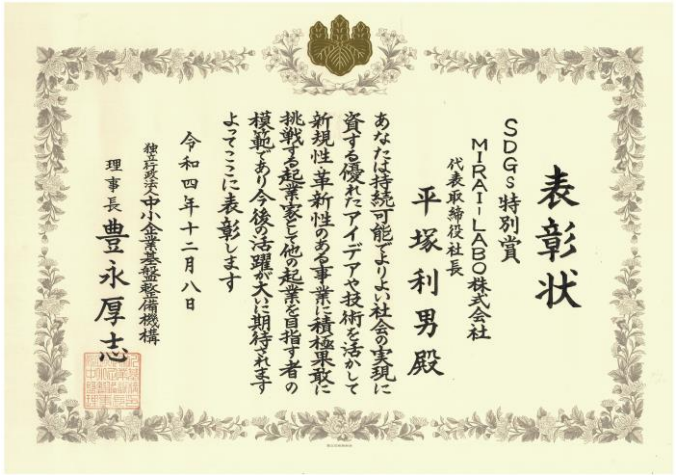 表彰状
SDGs特別賞
MIRAI-LABO株式会社
代表取締役社長
平塚利男殿
あなたは持続可能でよりよい社会の実現に
資する優れたアイデアや技術を活かして
新規性革新性のある事業に積極果敢に
挑戦する起業家として他の起業を目指す者の
模範であり今後の活躍が大いに期待されます
よってここに表彰します
令和四年十二月八日
独立行政法人中小企業基盤整備機構
理事長 豊永厚志